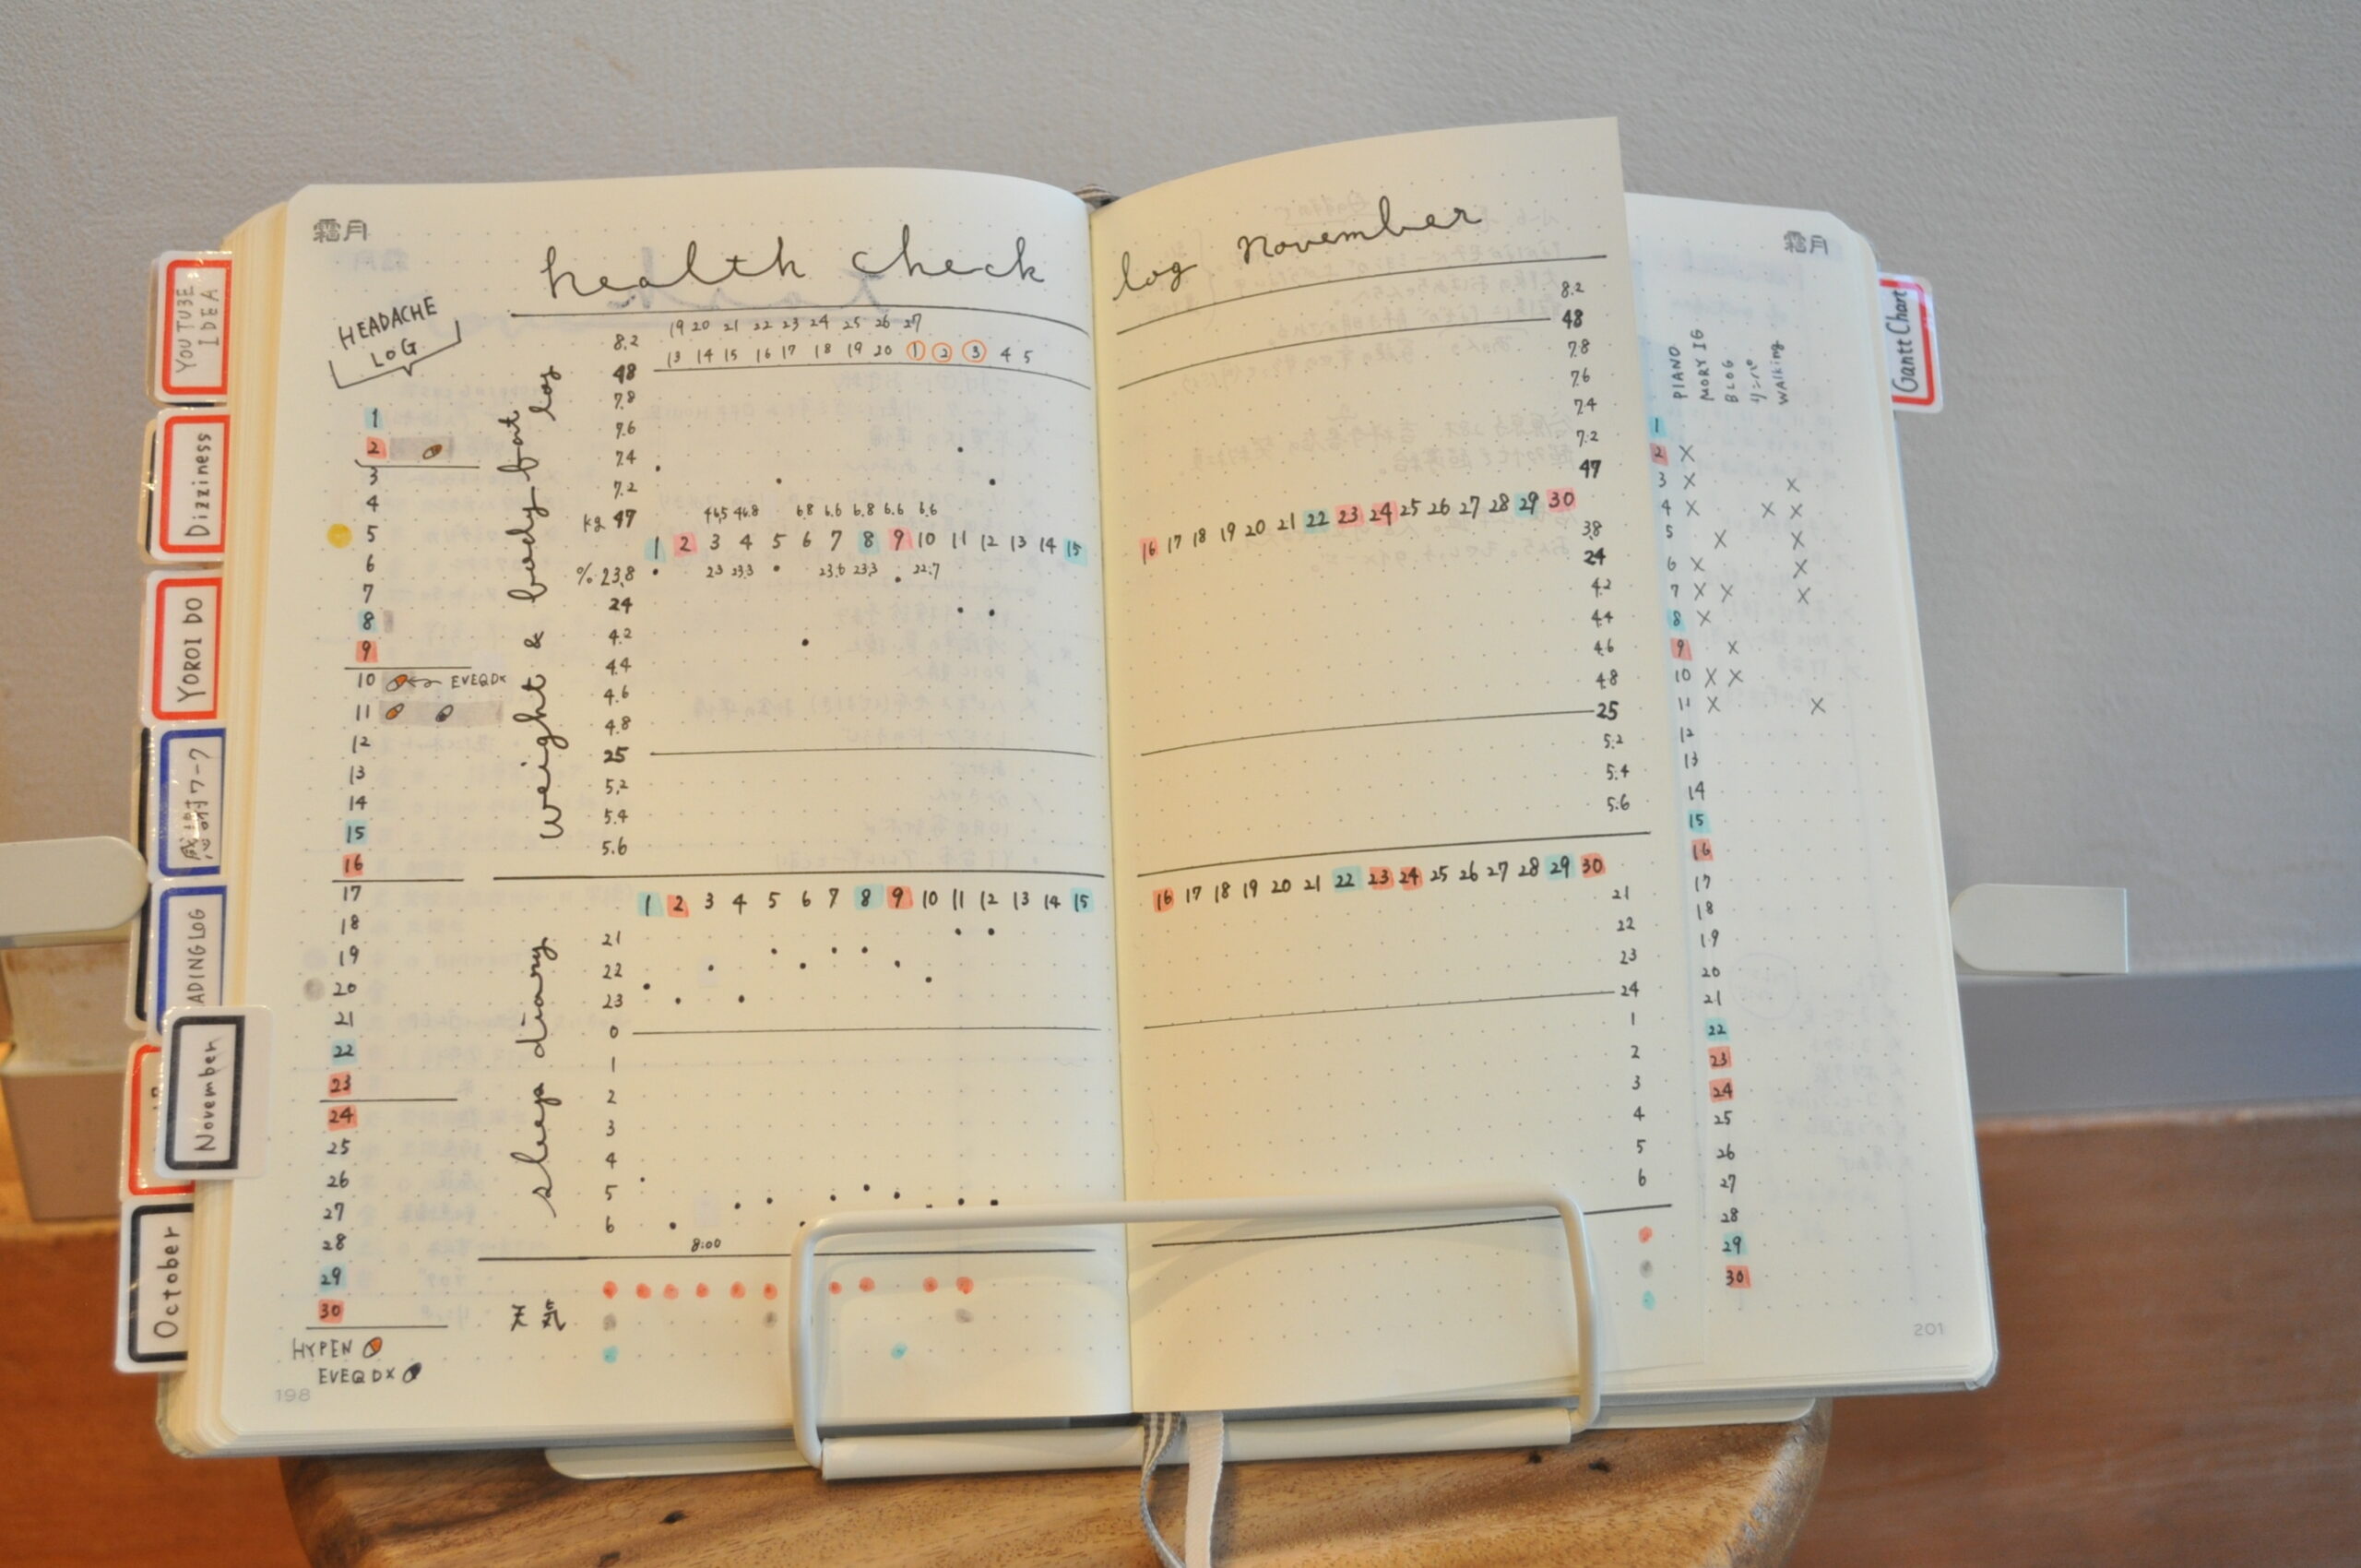 霜月
health check
log November
霜月
HEADACHE
LOG
1
2
3
4
5
6
7
8
9
10 EVEQDX
11
12
13
14
15
16
17
18
19
20
21
22
23
24
25
26
27
28
29
30
HYPEN
EVEQDX
198
weight & body fat log
19 20 21 22 23 24 25 26 27
13 14 15 16 17 18 19 20 1 2 3 4 5
8.2
48
7.8
7.6
7.4
7.2
kg 47
46.5 46.8 6.8 6.6 6.8 6.6 6.6
1 2 3 4 5 6 7 8 9 10 11 12 13 14 15
% 23.8 23 23.3 23.6 23.3 22.7
24
4.2
4.4
4.6
4.8
25
5.2
5.4
5.6
sleep diary
1 2 3 4 5 6 7 8 9 10 11 12 13 14 15
21
22
23
0
1
2
3
4
5
6
8:00
天気
8.2
48
7.8
7.6
7.4
7.2
47
16 17 18 19 20 21 22 23 24 25 26 27 28 29 30
3.8
24
4.2
4.4
4.6
4.8
25
5.2
5.4
5.6
16 17 18 19 20 21 22 23 24 25 26 27 28 29 30
21
22
23
24
1
2
3
4
5
6
PIANO
MORY IG
BLOG
リンパ
Walking
1
2 X
3 X X
4 X X X
5 X X
6 X X
7 X X X
8 X
9 X
10 X X
11 X X
12
13
14
15
16
17
18
19
20
21
22
23
24
25
26
27
28
29
30
201
YOUTUBE
IDEA
Dizziness
YOROI DO
感謝ワーク
ADING LOG
November
October
Gantt Chart